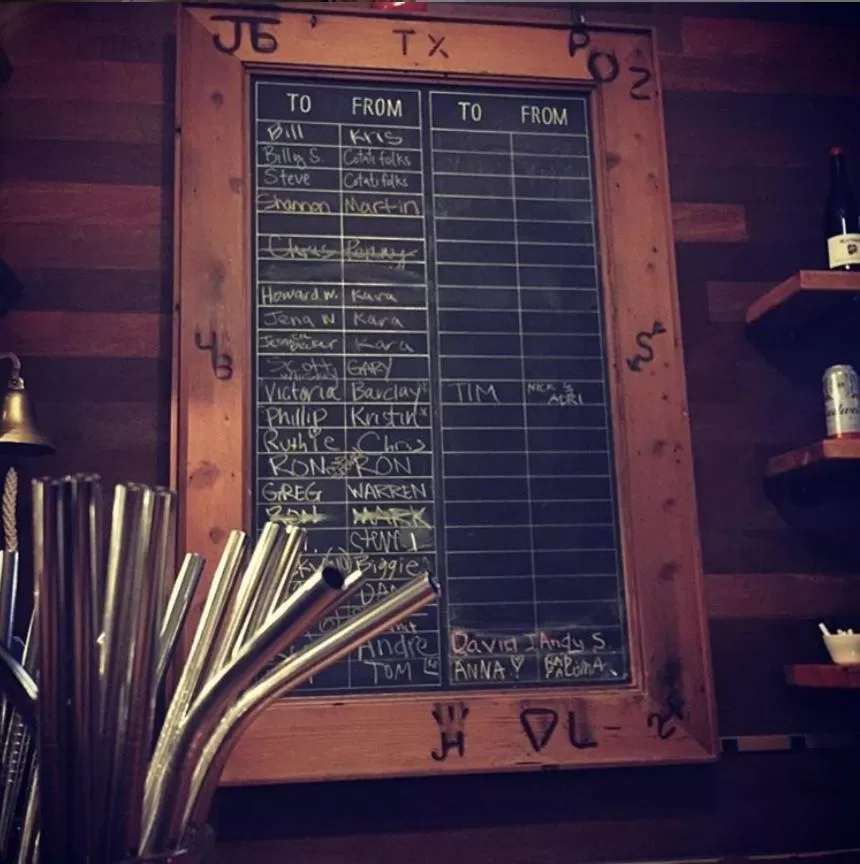 JB TX POZ
TO FROM TO FROM
Bill Kris
Billy S. Cotati folks
Steve Cotati folks
Shannon Martin
Chris Penny
Howard W. Kara
Jena N Kara
Kara
Scott GARY
Whiskey
Victoria Barclay TIM NICK & ADRI
Phillip Kristin
Ruthie Chris
RON RON
GREG WARREN
RON MARK
Steve
Biggie
DAN
Andre David J Andy S.
TOM ANNA♡ PALOMA
JH